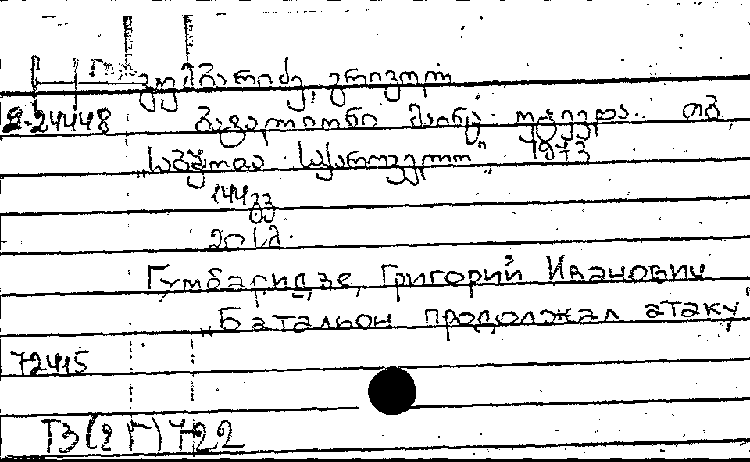 გუმბარიძე, გრიგოლ
2-24448 ბატალიონი მაინც უტევდა. თბ
„საბჭოთა საქართველო“ 1973
144 გვ
20 კ.
Гумбаридзе, Григорий Иванович
„Батальон продолжал атаку“
72415
ТЗ(2Г)722